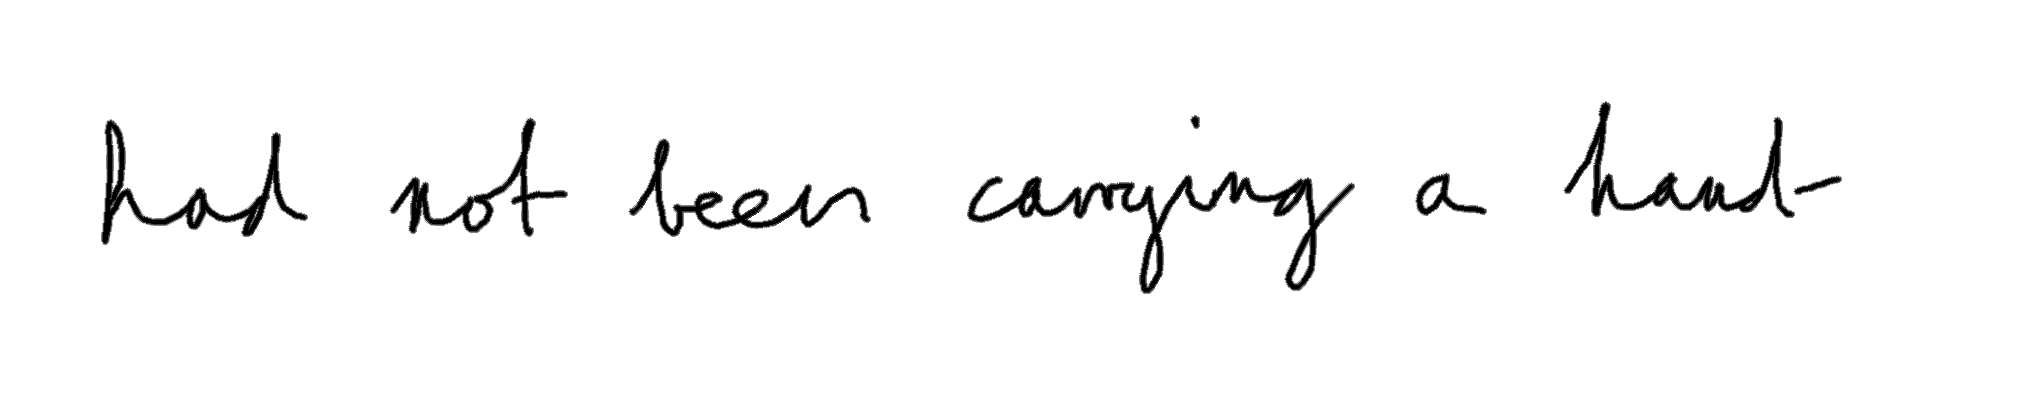 had not been carrying a hand-